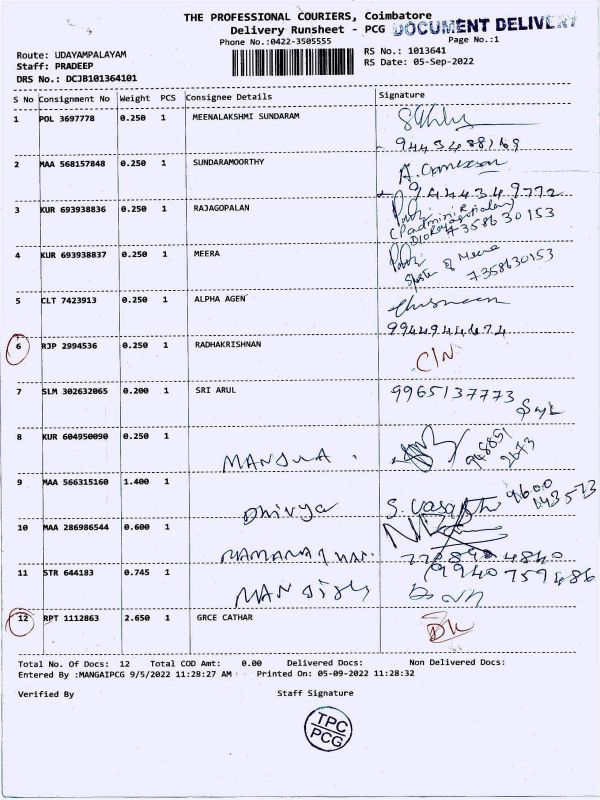 THE PROFESSIONAL COURIERS, Coimbatore
Delivery Runsheet - PCG DOCUMENT DELIVERY
Phone No.:0422-3505555 Page No.:1
Route: UDAYAMPALAYAM RS No.: 1013641
Staff: PRADEEP RS Date: 05-Sep-2022
DRS No.: DCJB101364101
S No Consignment No Weight PCS Consignee Details Signature
1 POL 3697778 0.250 1 MEENALAKSHMI SUNDARAM
9443488169
2 MAA 568157848 0.250 1 SUNDARAMOORTHY
9444349772
3 KUR 693938836 0.250 1 RAJAGOPALAN
7358630153
4 KUR 693938837 0.250 1 MEERA
Sister of Meera
7358630153
5 CLT 7423913 0.250 1 ALPHA AGEN
9944944674
6 RJP 2994536 0.250 1 RADHAKRISHNAN
C/N
7 SLM 302632065 0.200 1 SRI ARUL 9965137773
8 KUR 604950090 0.250 1
MANJULA .
9 MAA 566315160 1.400 1
Dhivya
10 MAA 286986544 0.600 1
11 STR 644183 0.745 1
12 RPT 1112863 2.650 1 GRCE CATHAR
Total No. Of Docs: 12 Total COD Amt: 0.00 Delivered Docs: Non Delivered Docs:
Entered By :MANGAIPCG 9/5/2022 11:28:27 AM Printed On: 05-09-2022 11:28:32
Verified By Staff Signature
TPC
PCG